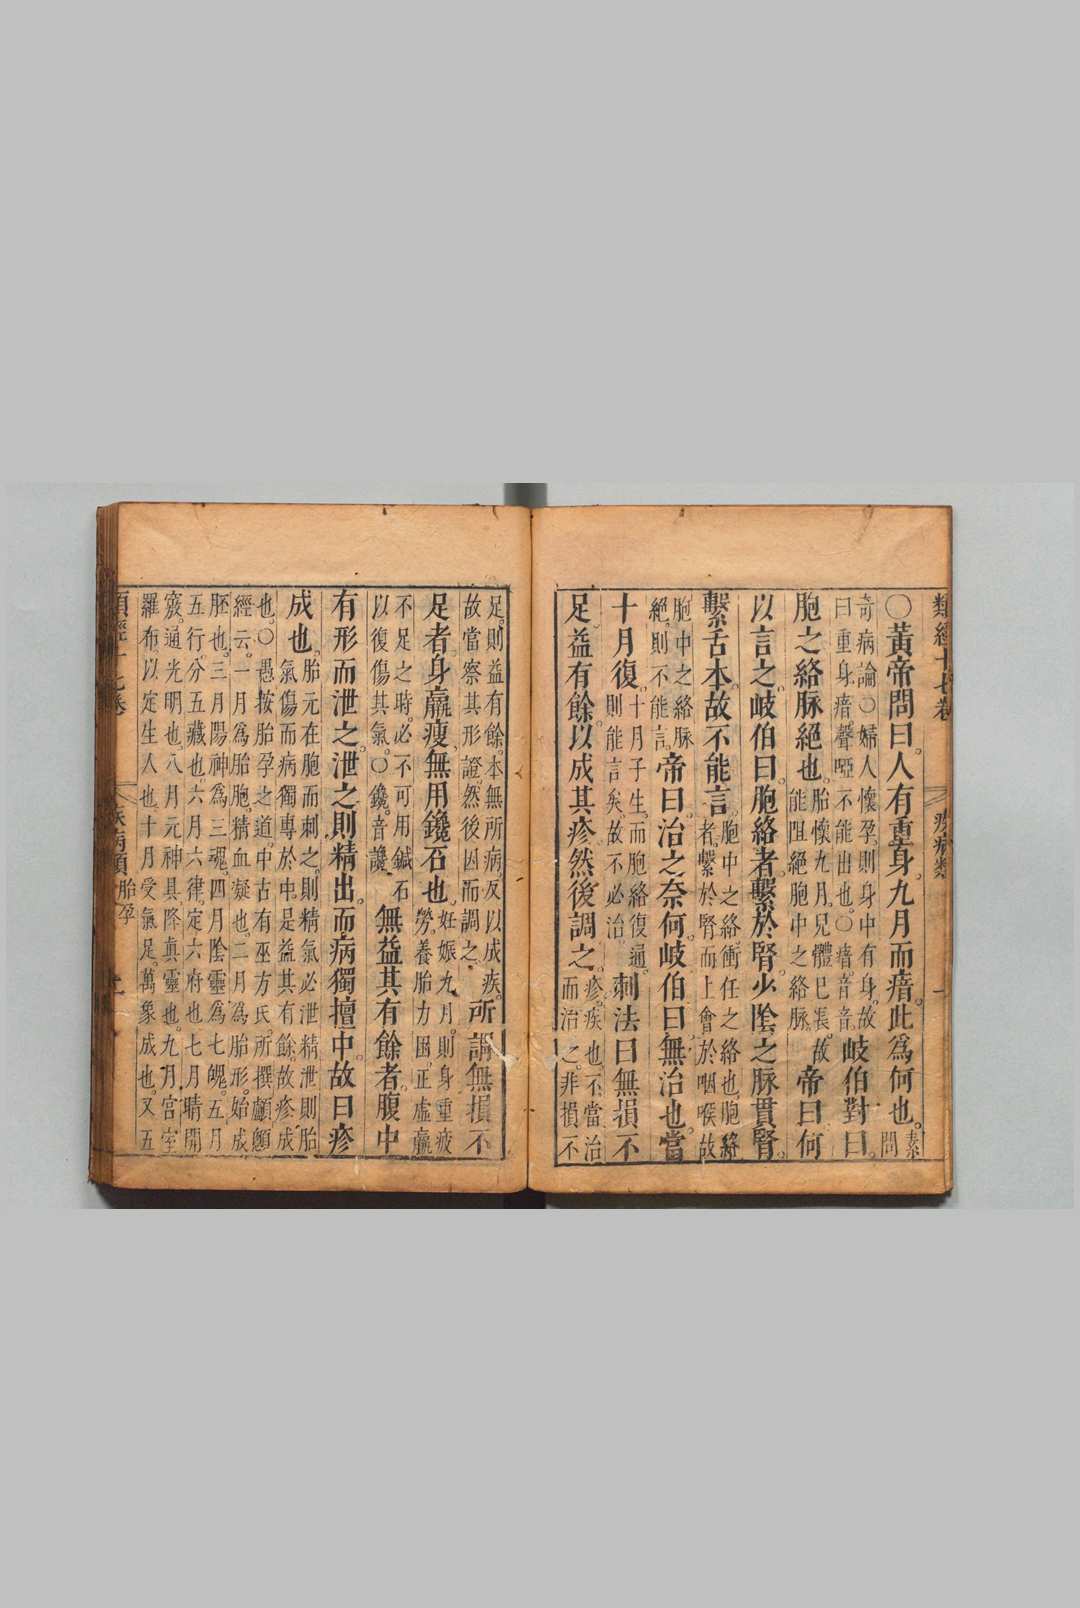 類經十七卷 疾病類 一
〇黃帝問曰。人有重身九月而瘖。此爲何也。素問
奇病論〇婦人懷孕。則身中有身。故曰重身。瘖聲啞不能出也。〇瘖音音。岐伯對曰。
胞之絡脉絕也。胎懷九月。兒體已長。故能阻絕胞中之絡脉。帝曰何
以言之。岐伯曰。胞絡者繫於腎。少陰之脉貫腎。
繫舌本。故不能言。胞中之絡。衝任之絡也。胞絡者。繫於腎而上會於咽喉。故
胞中之絡脉絕。則不能言。帝曰。治之奈何。岐伯曰。無治也。當
十月復。十月子生。而胞絡復通。則能言矣。故不必治。刺法曰無損不
足。益有餘。以成其疹。然後調之。疹。疾也。不當治而治之。非損不
足。則益有餘。本無所病。反以成疾。故當察其形證。然後因而調之。所謂無損不
足者。身羸瘦。無用鑱石也。妊娠九月。則身重疲勞。養胎力困。正虛羸
不足之時。必不可用鍼石以復傷其氣。〇鑱。音讒。無益其有餘者。腹中
有形而泄之。泄之則精出。而病獨擅中。故曰疹
成也。胎元在胞而刺之。則精氣必泄。精泄則胎氣傷。而病獨專於中。是益其有餘。故疹成
也。〇愚按胎孕之道。中古有巫方氏。所撰顱顖經云。一月爲胎胞。精血凝也。二月爲胎形。始成
胚也。三月陽神爲三魂。四月陰靈爲七魄。五月五行。分五藏也。六月六律。定六府也。七月睛開
竅。通光明也。八月元神具。降真靈也。九月宮室羅布。以定生人也。十月受氣足。萬象成也。又五
類經十七卷 疾病類 胎孕 二